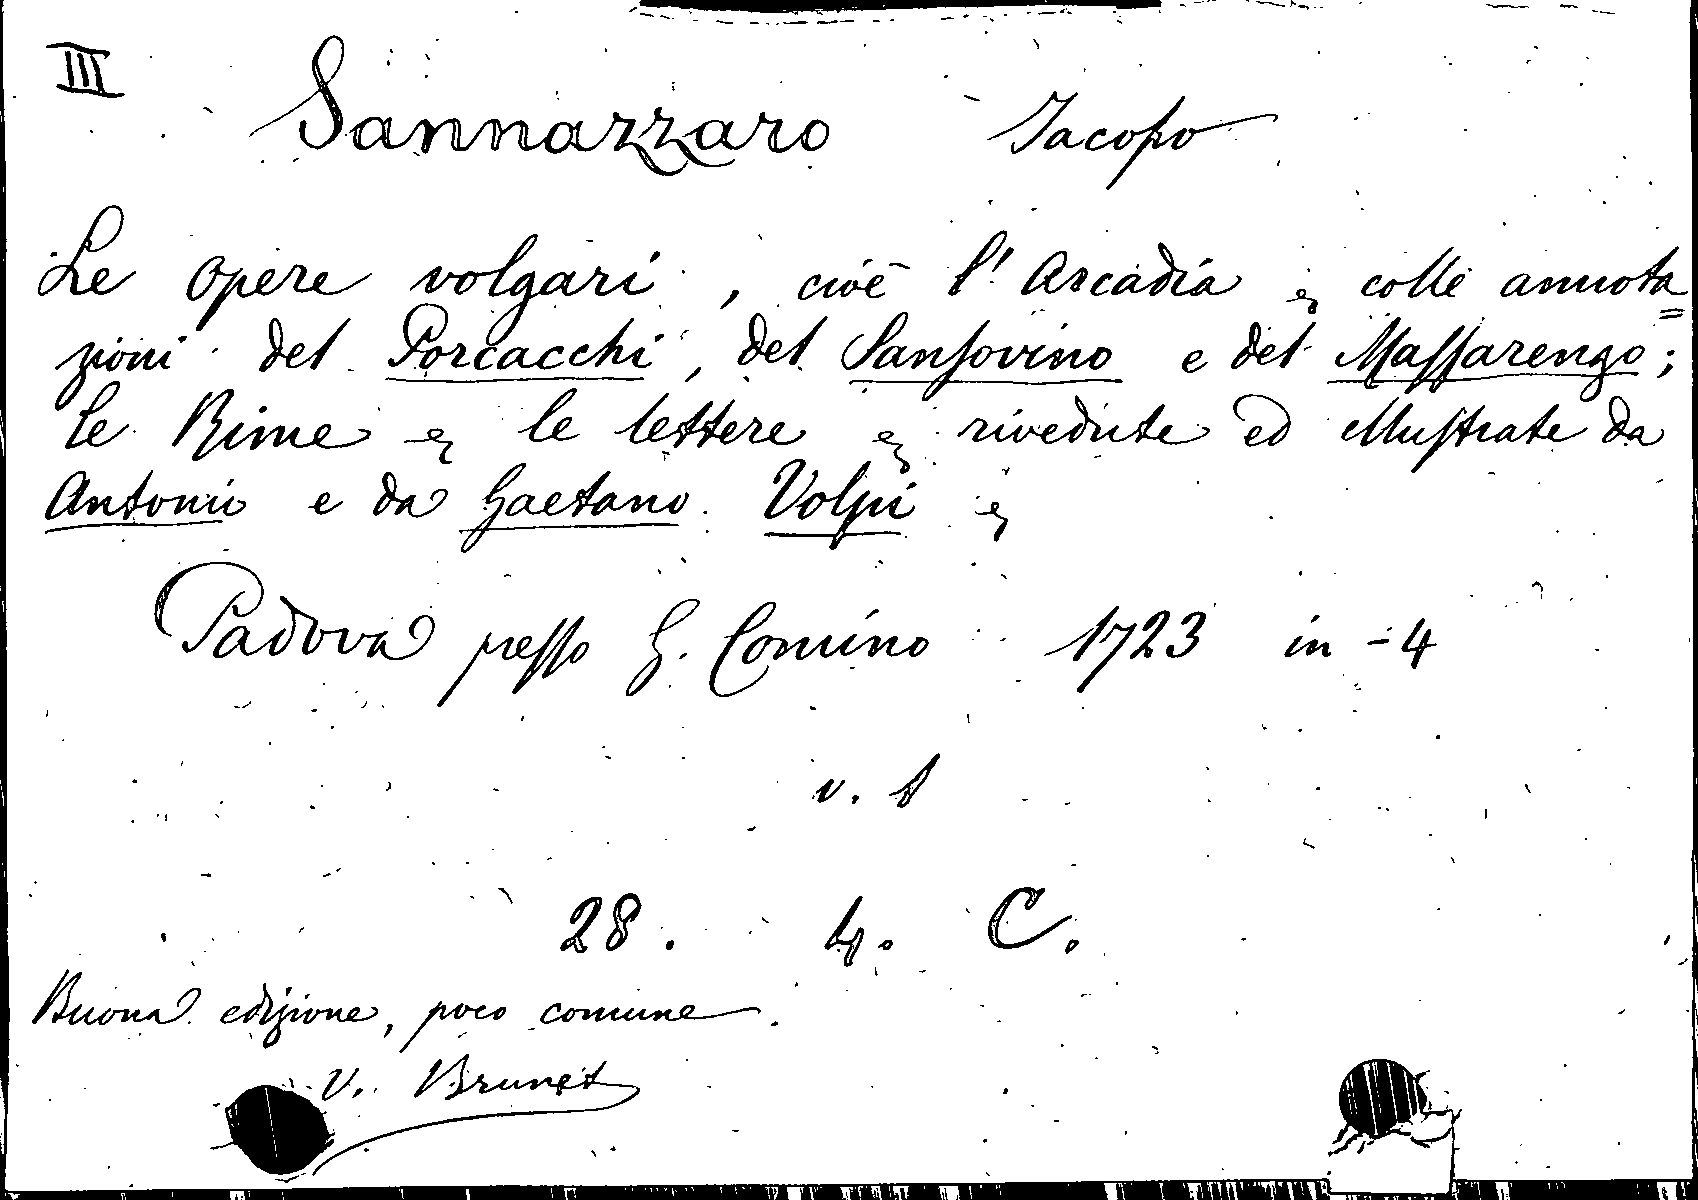 III
Sannazzaro Jacopo
Le opere volgari, cioè l'Arcadia & colle annota=
zioni del Porcacchi, del Sansovino e del Massarengo;
le Rime & le lettere & rivedute ed illustrate da
Antonio e da Gaetano Volpi &
Padova presso G. Comino 1723 in-4
v. 1
28. 4. C.
Buona edizione, poco comune.
V. Brunet